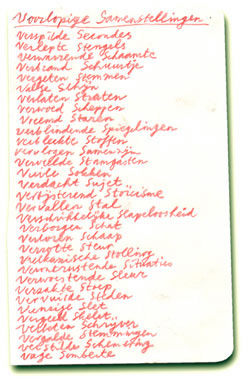 Voorlopige Samenstellingen.
Verspilde Secondes
Verlepte Stengels
Verwarrende Schaamte
Verbrand Schuurtje
Vergeten Stemmen
Valse Schijn
Verlaten Straten
Vervoerd Scheppen
Vreemd Staren
Verblindende Spiegelingen
Verbleekte Stoffen
Vervlogen Samenzijn
Verveelde Stamgasten
Vuile Sokken
Verdacht Sujet
Verbijsterend Stoïcisme
Vervallen Stal
Verschrikkelijke Slapeloosheid
Verborgen Schat
Verloren Schaap
Verrotte Steur
Vulkanische Stolling
Verontrustende Situaties
Verwoestende Sleur
Verzakte Stoep
Vervuilde Steden
Vunzige Slet
Vergeeld Skelet
Verloren Schrijver
Vergalde Stemmingen
Verstilde Schemering
Vage Somberte